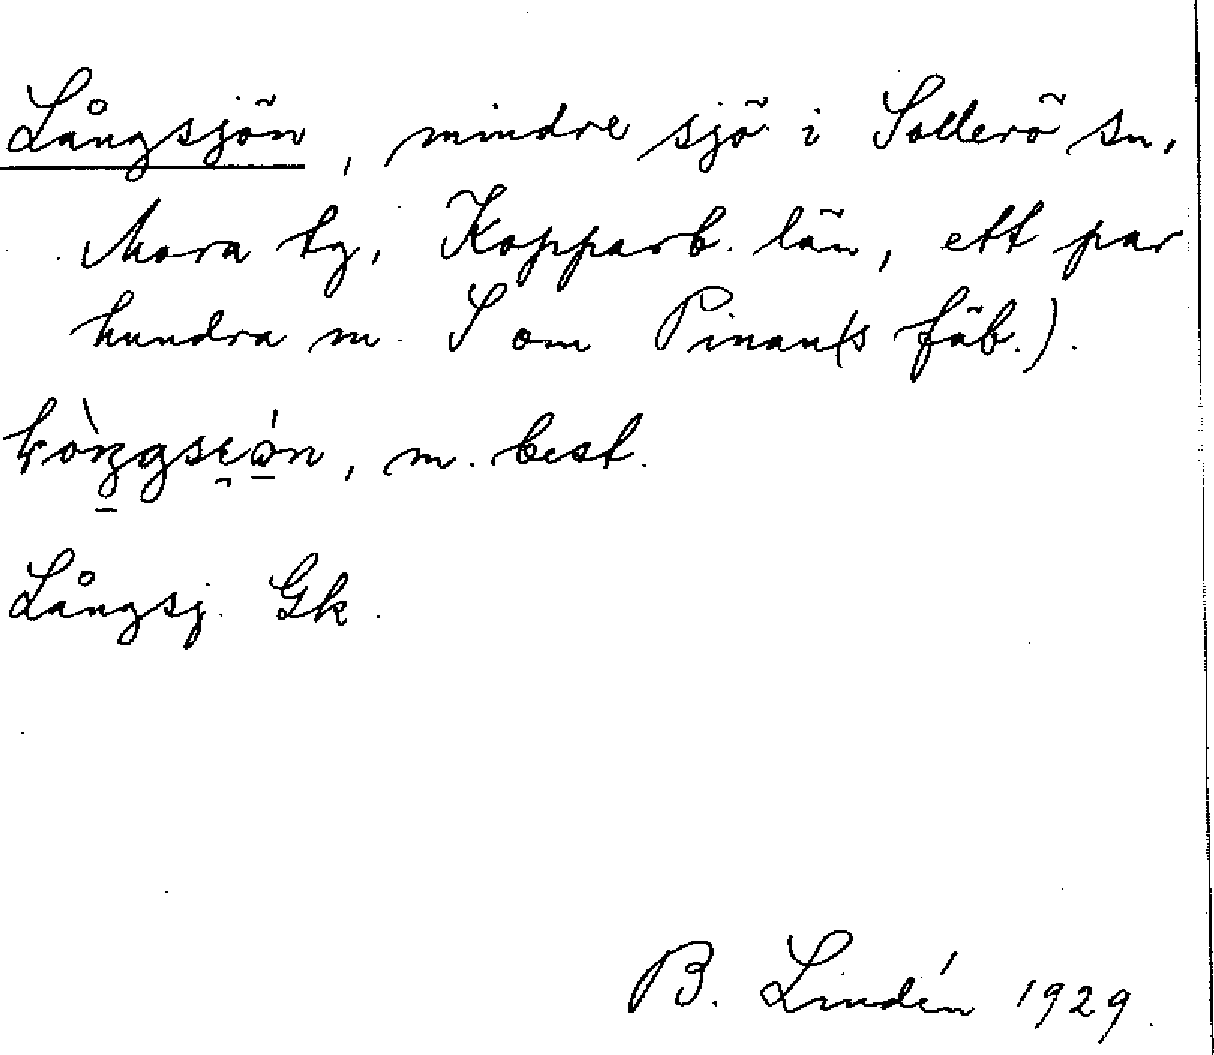 Långsjön, mindre sjö i Sollerö sn,
Mora tg, Kopparb. län, ett par
hundra m S om Pinan(s fäb.).
m. best.
Långsj. Gk.
B. Lindén 1929.